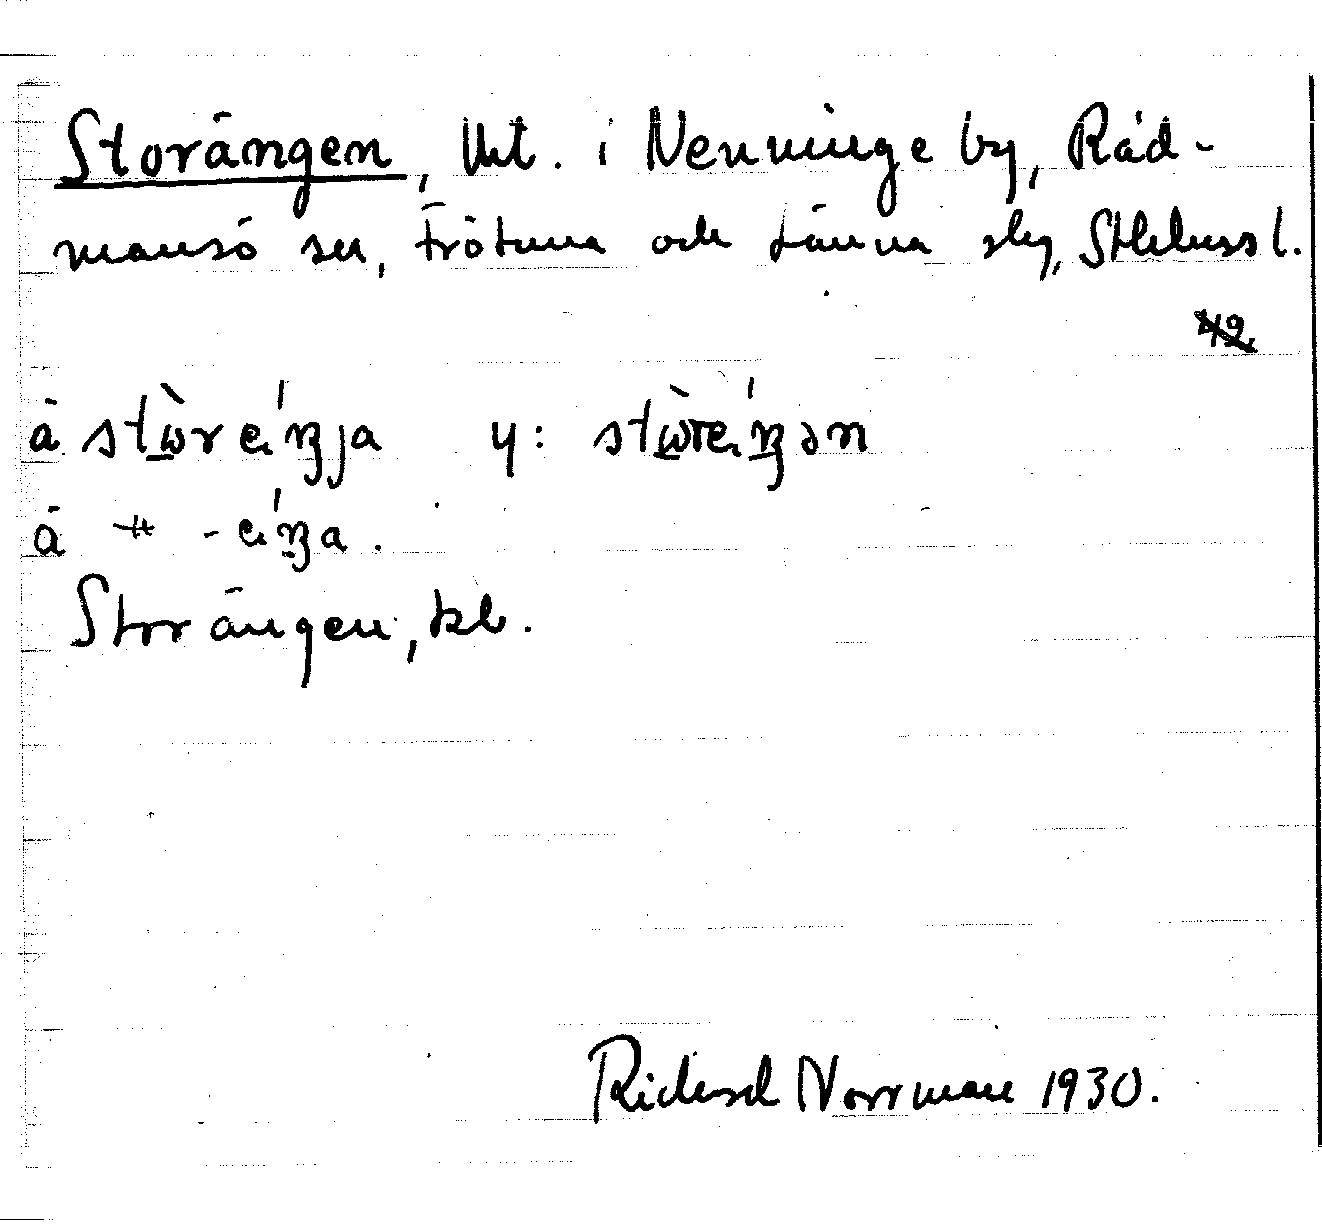 Storängen, Utt. i Nenninge by, Råd-
mansö sn, Frötuna och Länna slg, Sthlms l.
42
å stὼreńja y: stὼréŋən
å -" -éŋa.
Storängen, kb.
Rickard Norrman 1930.